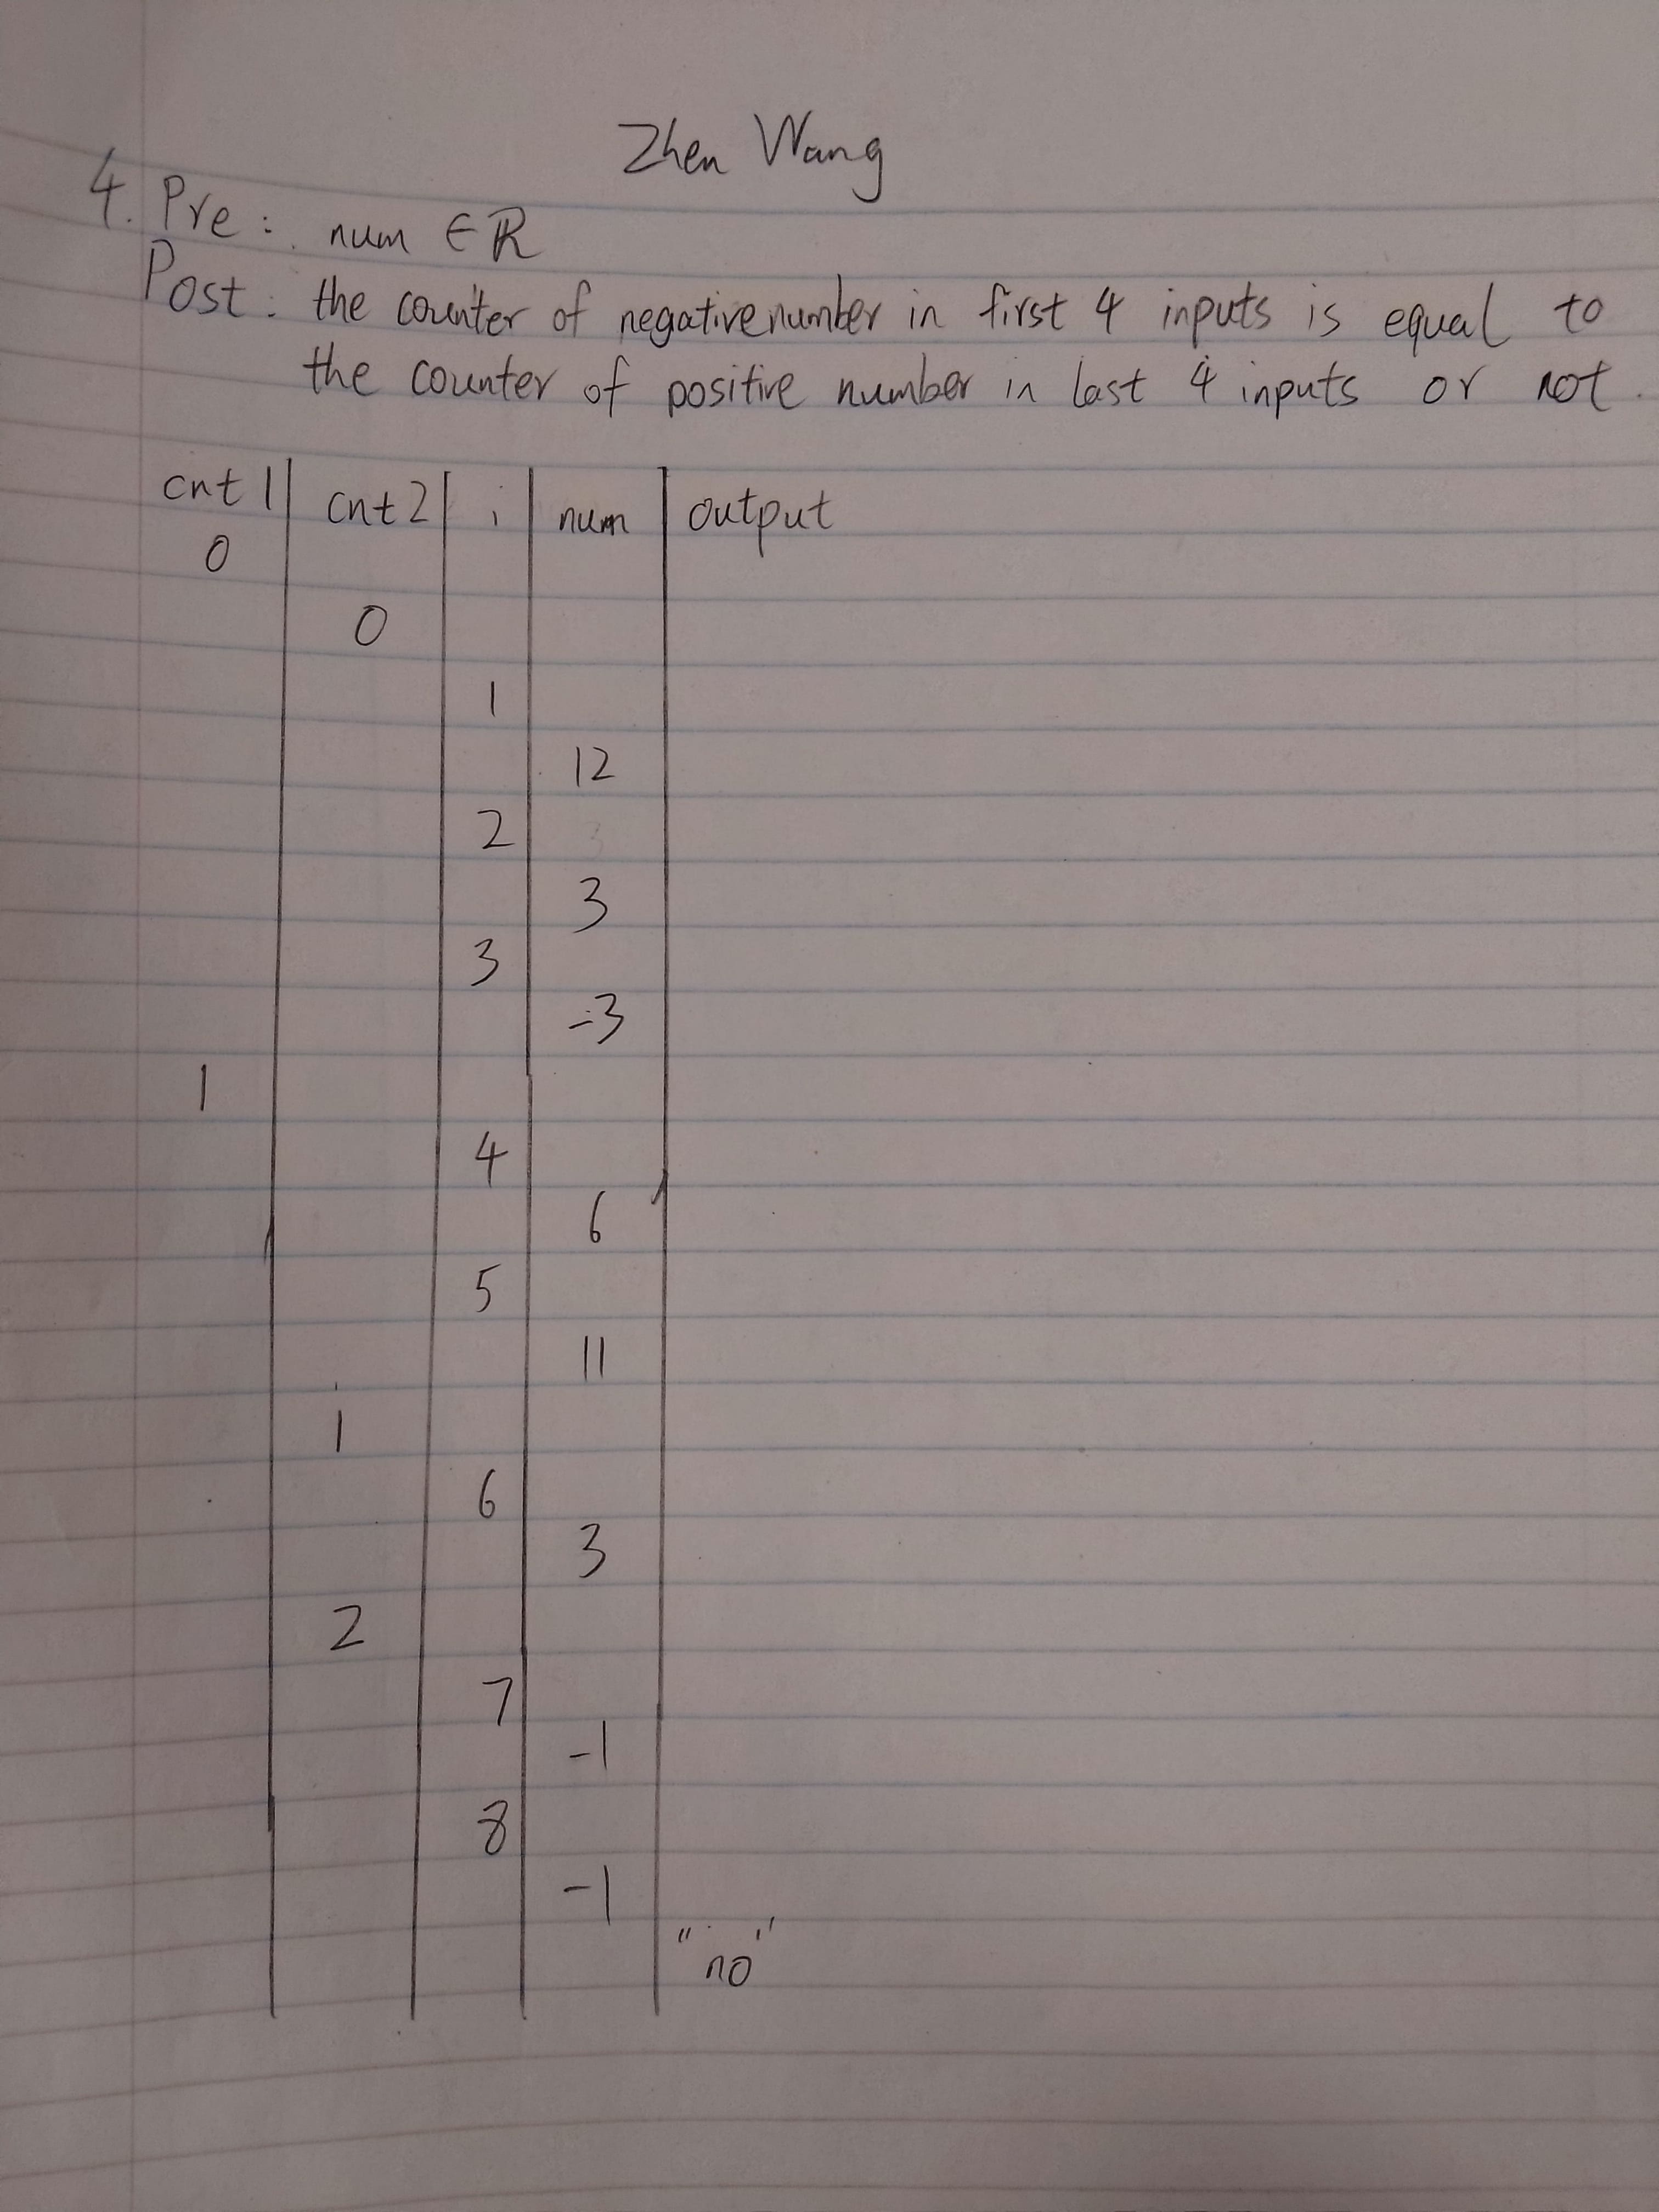 Zhen Wang
4. Pre: num ∈ ℝ
Post: the counter of negative number in first 4 inputs is equal to
the counter of positive number in last 4 inputs or not.
cnt1 cnt2 i num output
0
0
1
12
2
3
3
-3
1
4
6
5
11
1
6
3
2
7
-1
8
-1
"no"